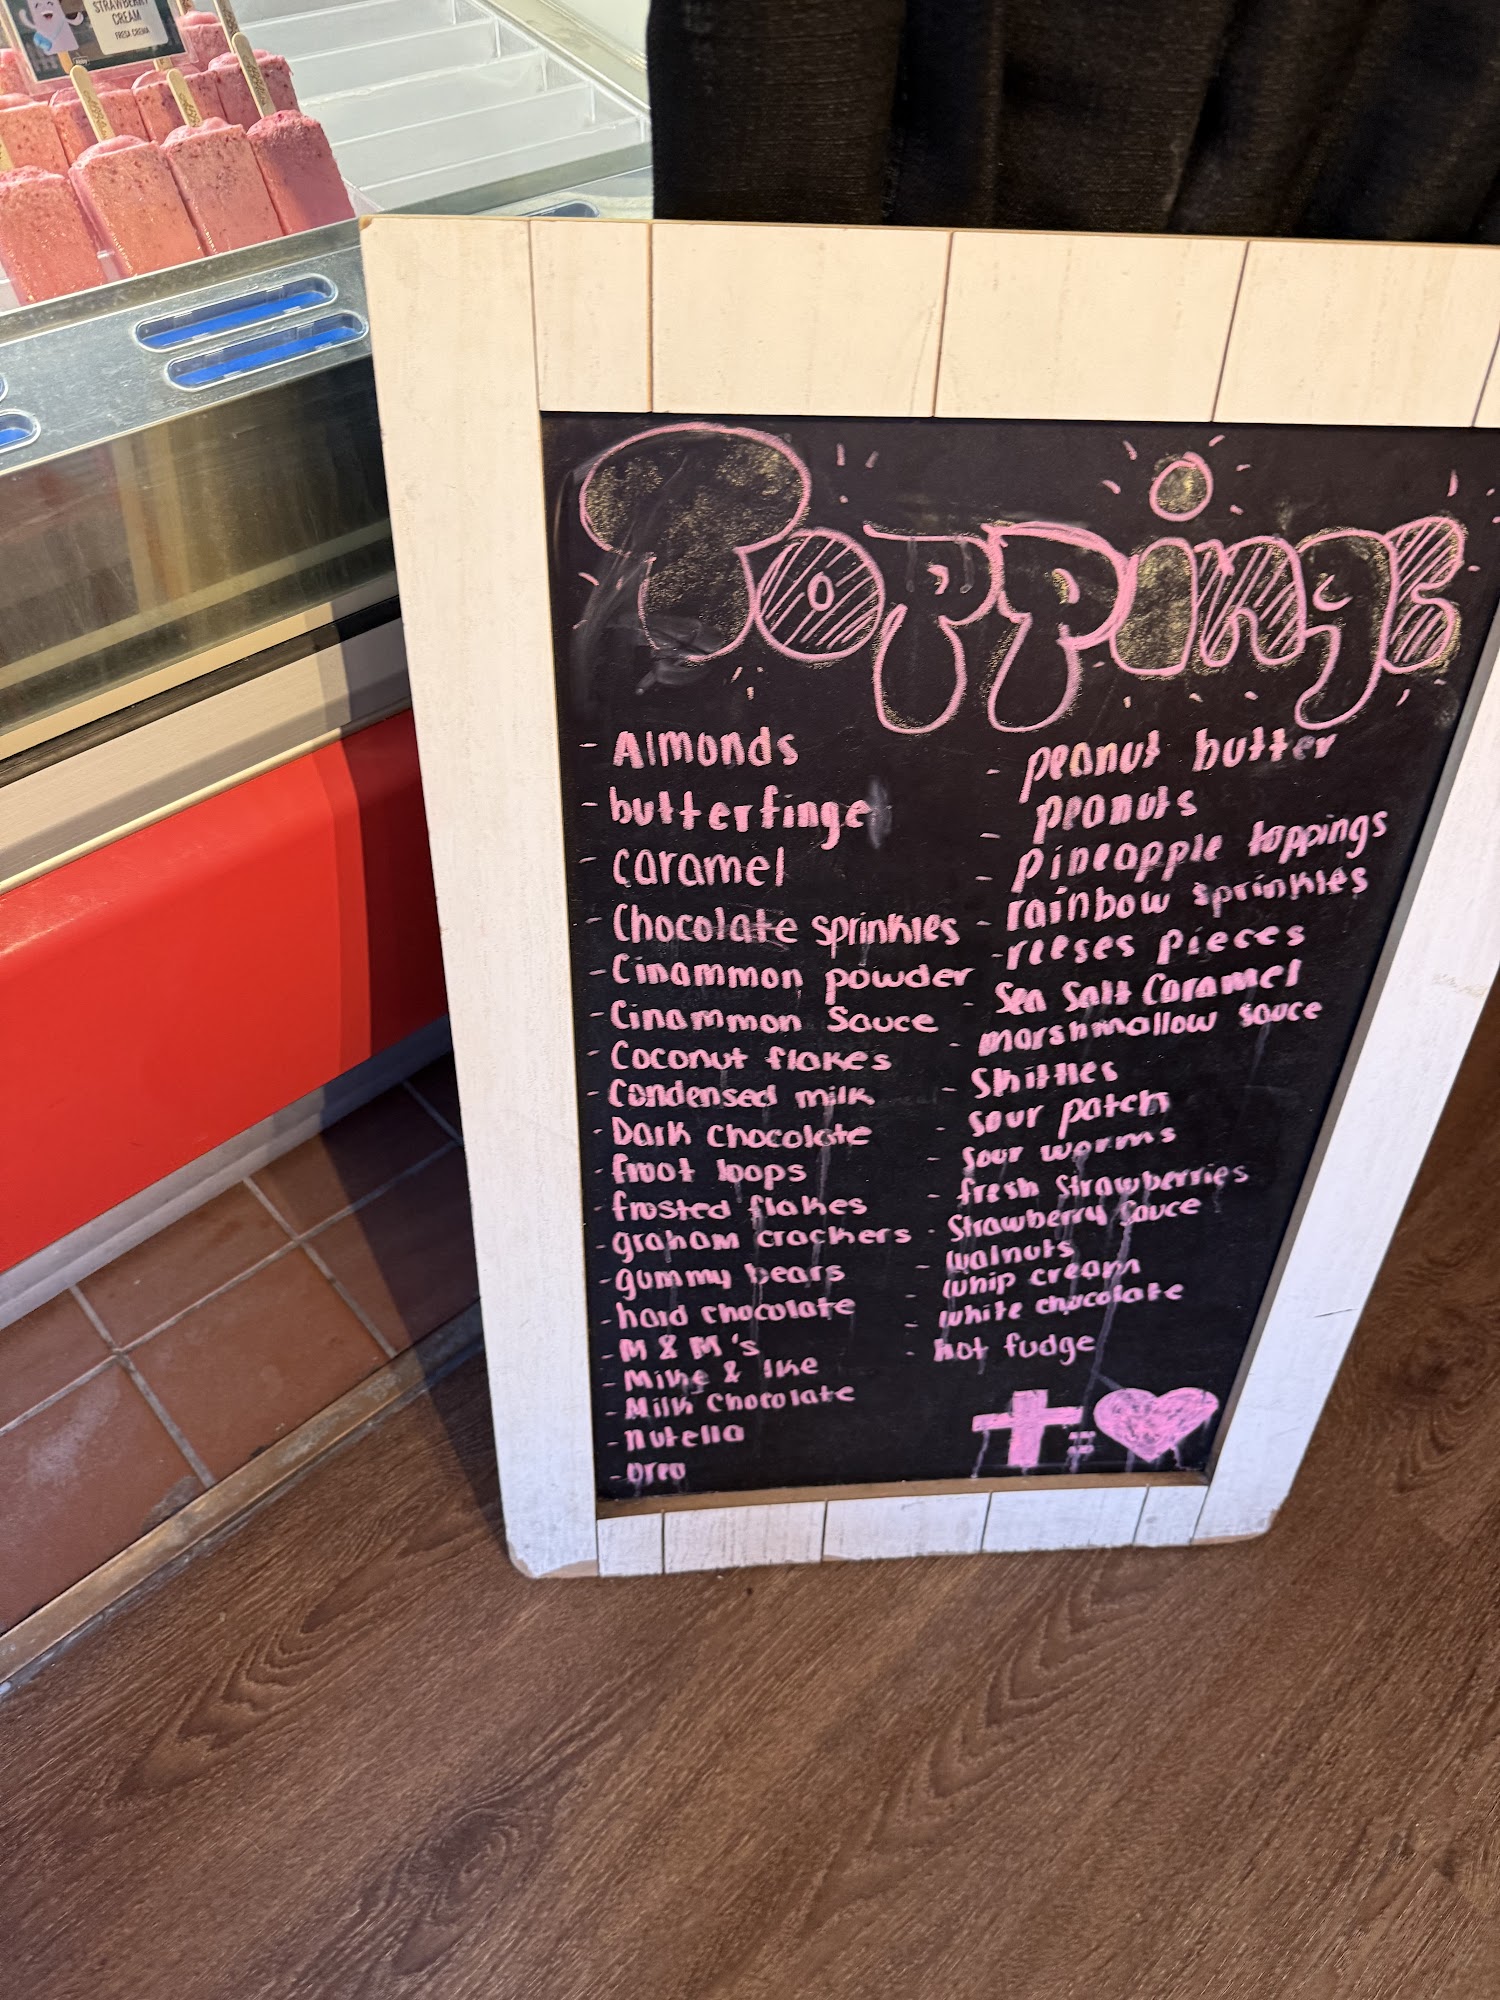 STRAWBERRY
CREAM
FRESA CREMA
Toppings
- Almonds
- butterfinge
- caramel
- Chocolate sprinkles
- Cinammon powder
- Cinammon Sauce
- Coconut flakes
- Condensed milk
- Dark chocolate
- froot loops
- frosted flakes
- graham crackers
- gummy bears
- hard chocolate
- M & M's
- Mike & Ike
- Milk chocolate
- nutella
- oreo
- peanut butter
- peanuts
- pineapple toppings
- rainbow sprinkles
- reeses pieces
- Sea Salt Caramel
- marshmallow sauce
- Skittles
- sour patch
- sour worms
- fresh strawberries
- Strawberry Sauce
- walnuts
- whip cream
- white chocolate
- hot fudge